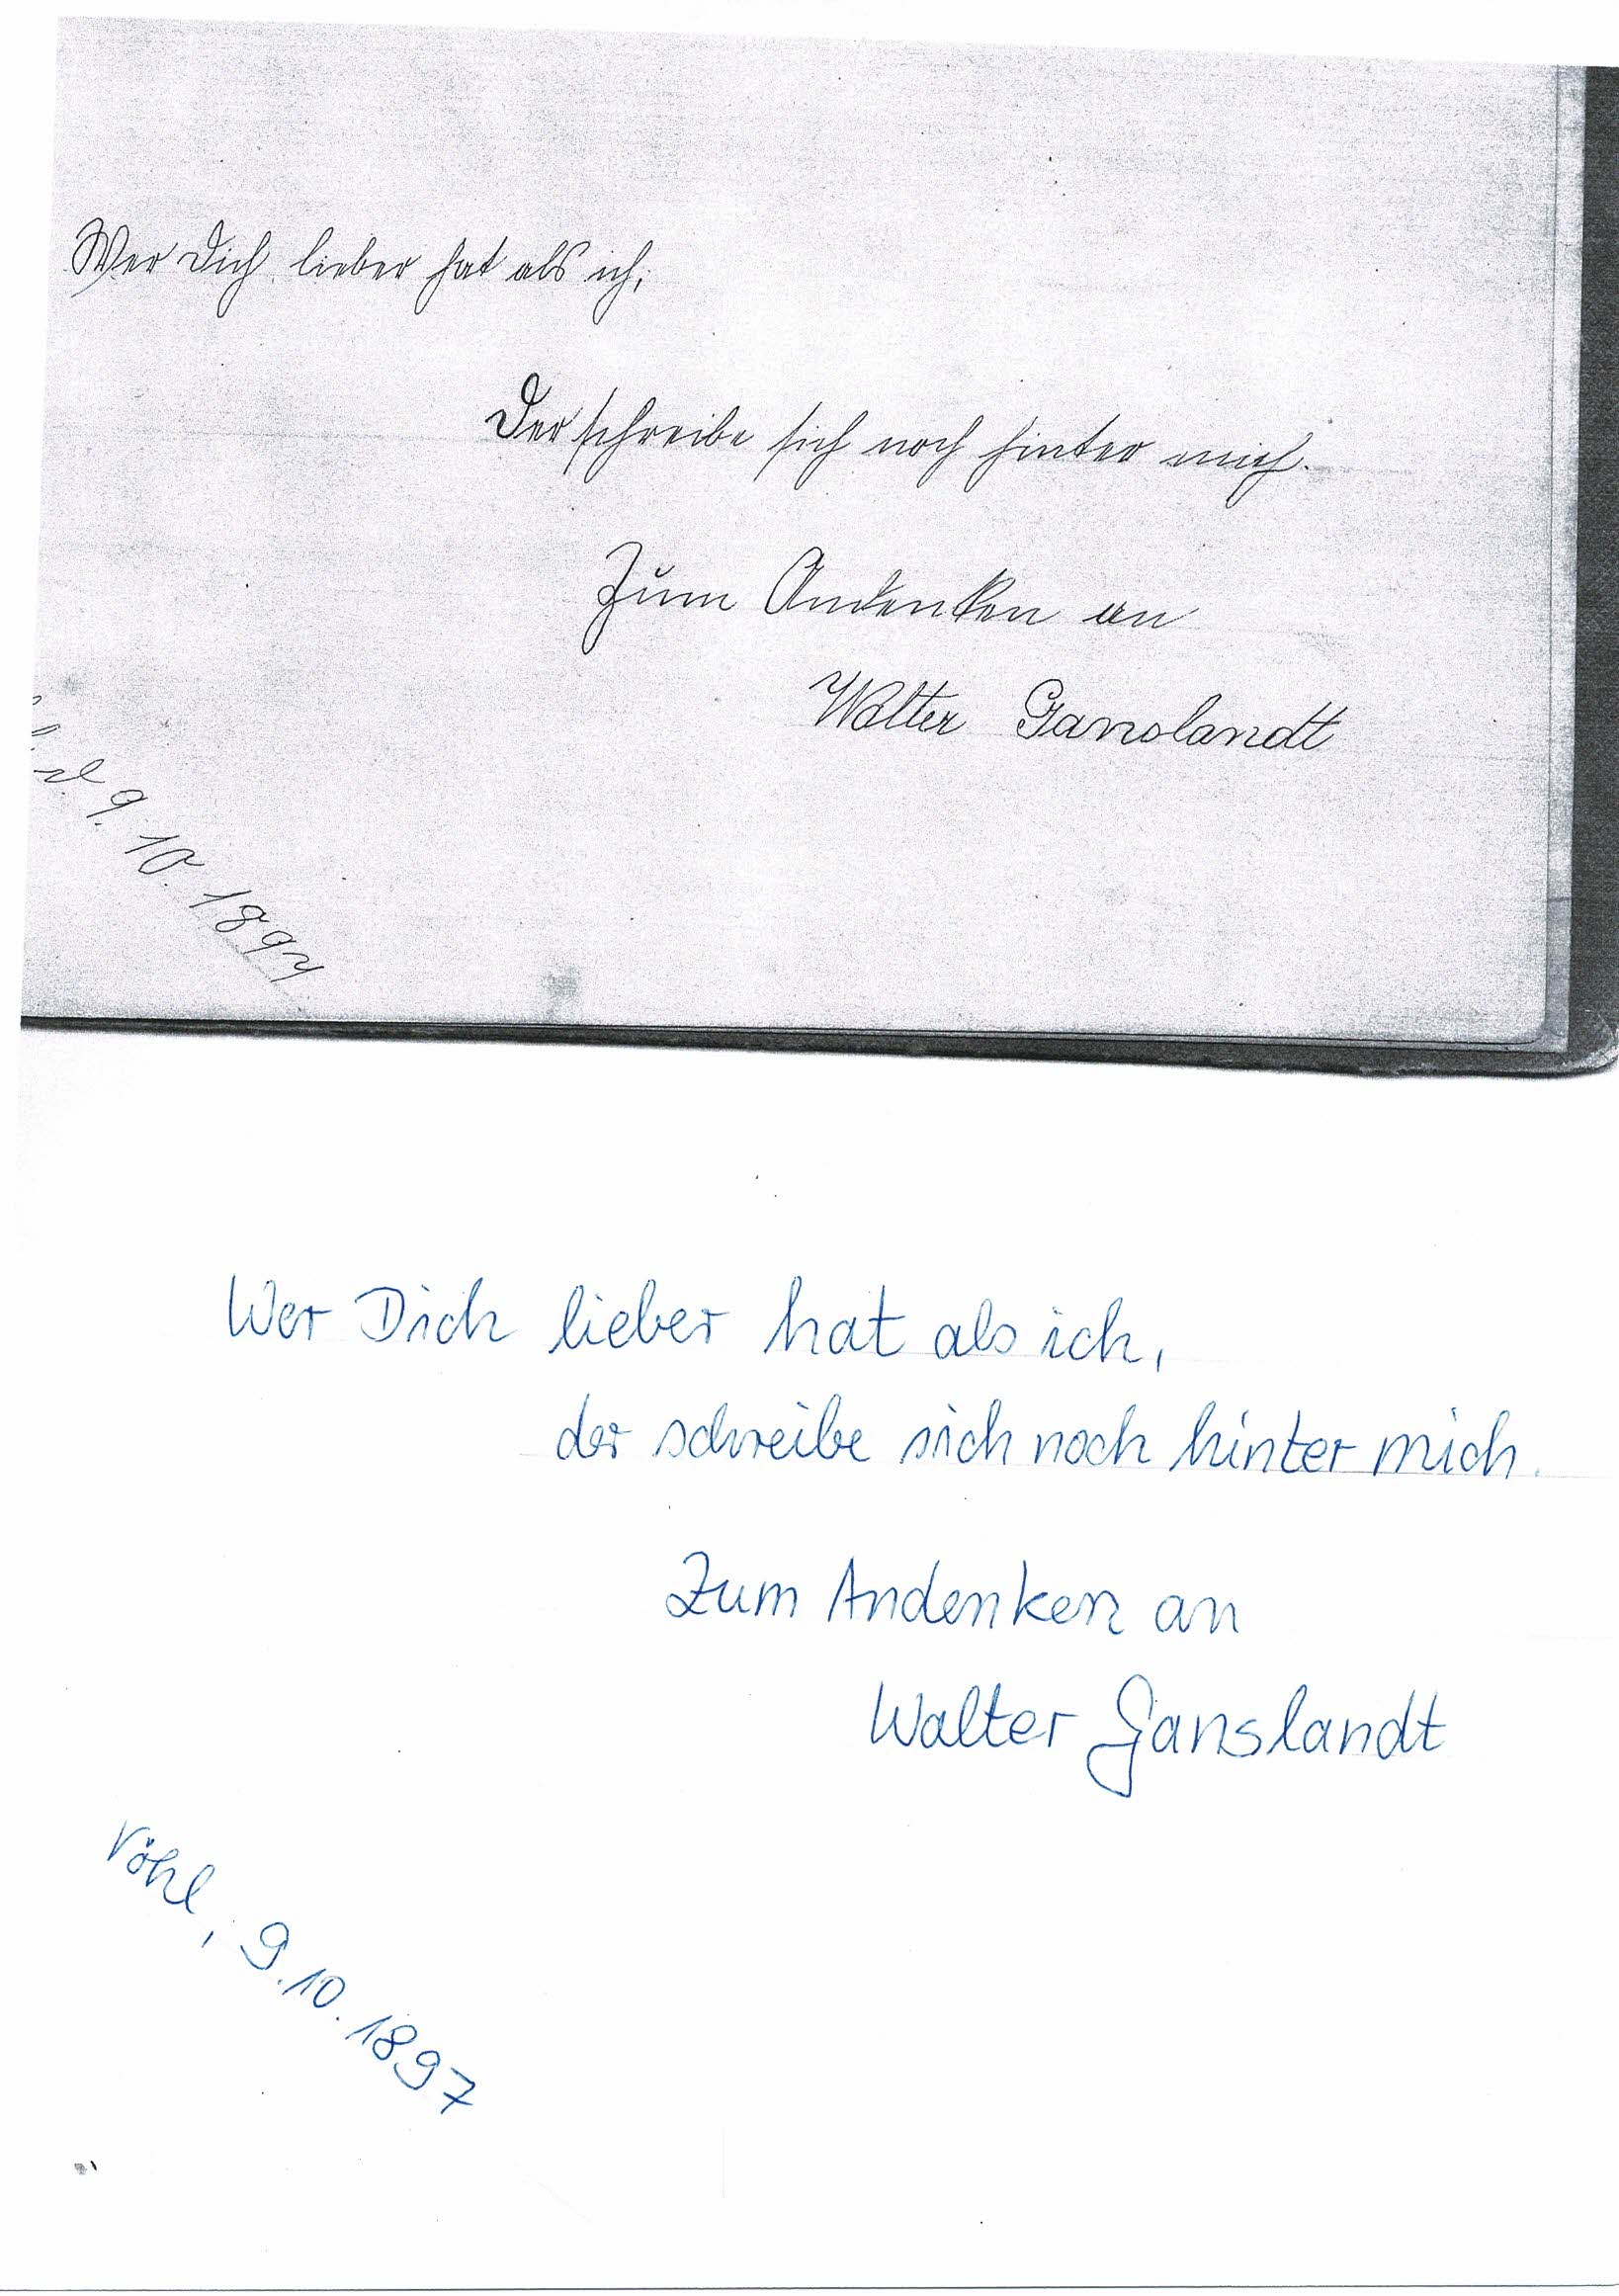 Wer Dich lieber hat als ich,
Der schreibe sich noch hinter mich.
Zum Andenken an
Walter Ganslandt
d. 9. 10. 1897
Wer Dich lieber hat als ich,
der schreibe sich noch hinter mich.
Zum Andenken an
Walter Ganslandt
Vöhl, 9.10.1897